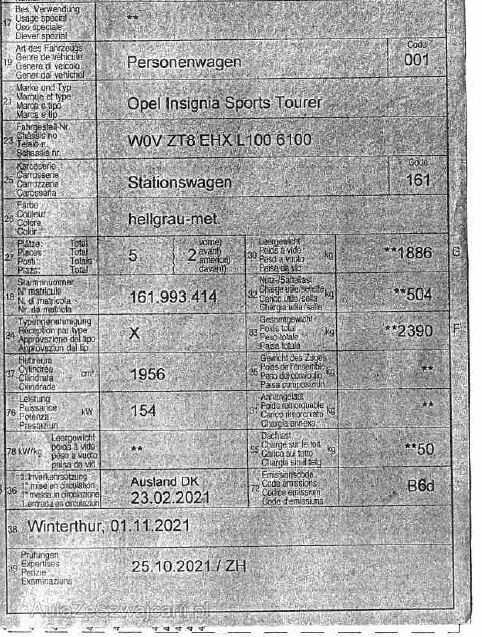 17 Bes. Verwendung
Usage spécial
Uso speciale
Diever spezial
**
19 Art des Fahrzeugs
Genre de véhicule
Genere di veicolo
Gener dal vehichel
Personenwagen
Code
001
21 Marke und Typ
Marque et type
Marca e tipo
Marca e tip
Opel Insignia Sports Tourer
23 Fahrgestell-Nr.
Châssis no
Telaio n.
Schassis nr.
W0V ZT8 EHX L100 6100
25 Karosserie
Carrosserie
Carrozzeria
Carossaria
Stationswagen
Code
161
26 Farbe
Couleur
Colore
Colur
hellgrau-met.
27 Plätze: Total
Places: Total
Posti: Totale
Plazs: Total
5
vorne)
avant)
anteriori)
davant)
2
30 Leergewicht
Poids à vide
Peso a vuoto
Paisa da vid
kg
**1886
G
18 Stammnummer
N° matricule
N. di matricola
Nr. da matricla
161.993.414
Nutz-/Sattellast
Charge utile/sellette
Carico utile/sella
Chargia utila/sella
kg
**504
24 Typengenehmigung
Réception par type
Approvazione del tipo
Approvaziun dal tip
X
33 Gesamtgewicht
Poids total
Peso totale
Paisa totala
kg
**2390
F
37 Hubraum
Cylindrée
Cilindrata
Cilindrada
cm³
1956
35 Gewicht des Zuges
Poids de l'ensemble
Peso del convoglio
Paisa cumposiziun
kg
**
76 Leistung
Puissance
Potenza
Prestaziun
kW
154
31 Anhängelast
Poids remorquable
Carico rimorchiato
Chargia annexa
kg
**
78 kW/kg
Leergewicht
poids à vide
peso a vuoto
paisa da vid
**
Dachlast
Charge sur le toit
Carico sul tetto
Chargia sin il tetg
kg
**50
36 1. Inverkehrsetzung
1re mise en circulation
1a messa in circolazione
1. entrada en circulaziun
Ausland DK
23.02.2021
72 Emissionscode
Code émissions
Codice emissioni
Code d'emissiuns
B6d
38 Winterthur, 01.11.2021
39 Prüfungen
Expertises
Perizie
Examinaziuns
25.10.2021 / ZH
AutaZeSzwajcarii.pl